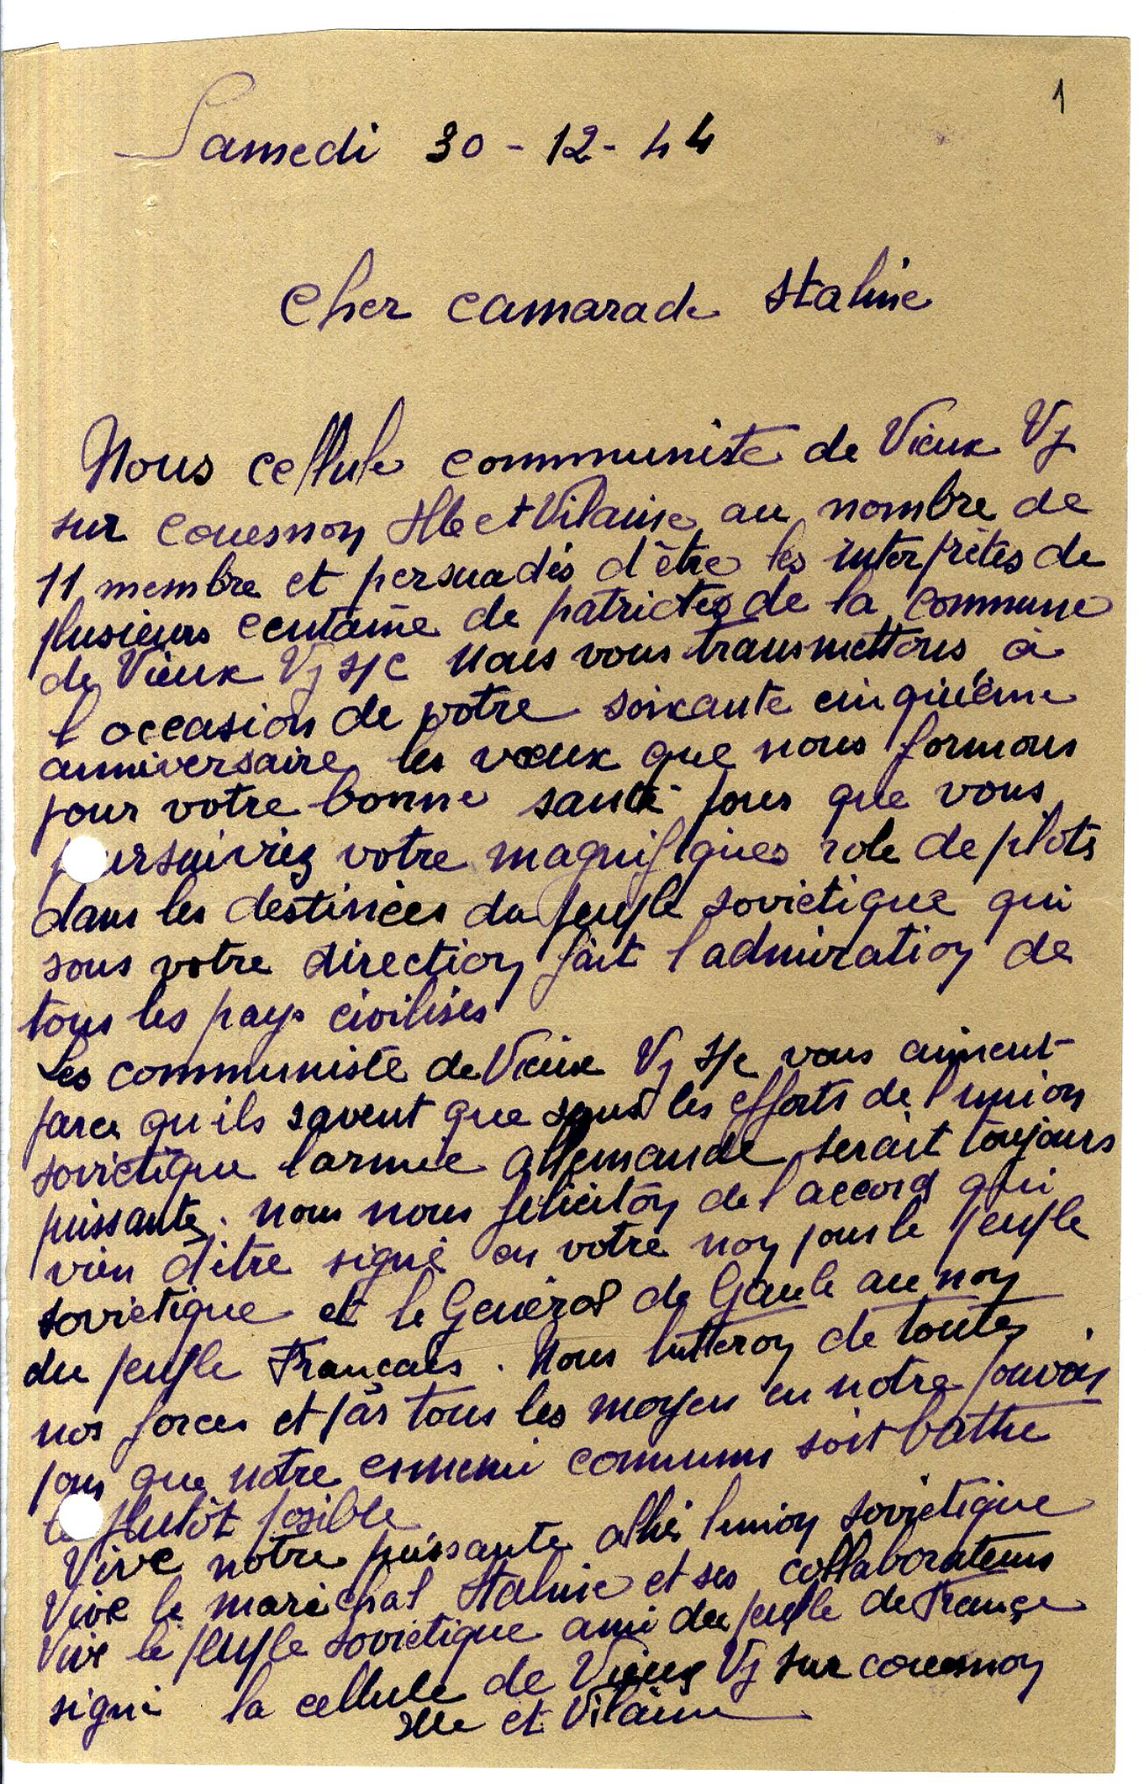 1
Samedi 30-12-44
Cher camarade Staline
Nous cellule communiste de Vieux Vy
sur couesnon Ille et Vilaine au nombre de
11 membre et persuadés d'être les interprètes de
plusieurs centaine de patriotes de la commune
de Vieux Vy s/c nous vous transmettons à
l'occasion de votre soixante cinquième
anniversaire les vœux que nous formons
pour votre bonne santé pour que vous
poursuiviez votre magnifiques role de pilote
dans les destinées du peuple soviétique qui
sous votre direction fait l'admiration de
tous les pays civilisés
Les communiste de Vieux Vy s/c vous aiment
parce qu'ils savent que sans les efforts de l'union
soviétique l'armée allemande serait toujours
puissante. nous nous féliciton de l'accord qui
vien d'être signé en votre nom pour le peuple
soviétique et le Général de Gaule au nom
du peuple Français. Nous lutteron de toutes
nos forces et par tous les moyen en notre pouvoir
pour que notre ennemi commun soit battu
le plutôt posible
Vive notre puissante allié l'union soviétique
Vive le maréchal Staline et ses collaborateurs
Vive le peuple soviétique ami du peuple de France
signé la cellule de Vieux Vy sur couesnon
Ille et Vilaine